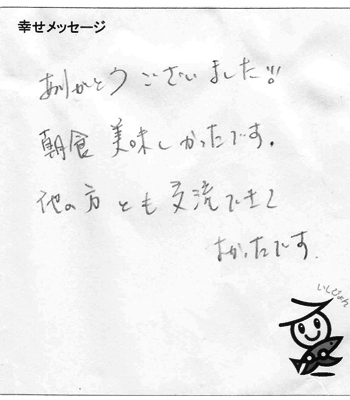 幸せメッセージ
ありがとうございました!!
朝食美味しかったです。
他の方とも交流できて
よかったです